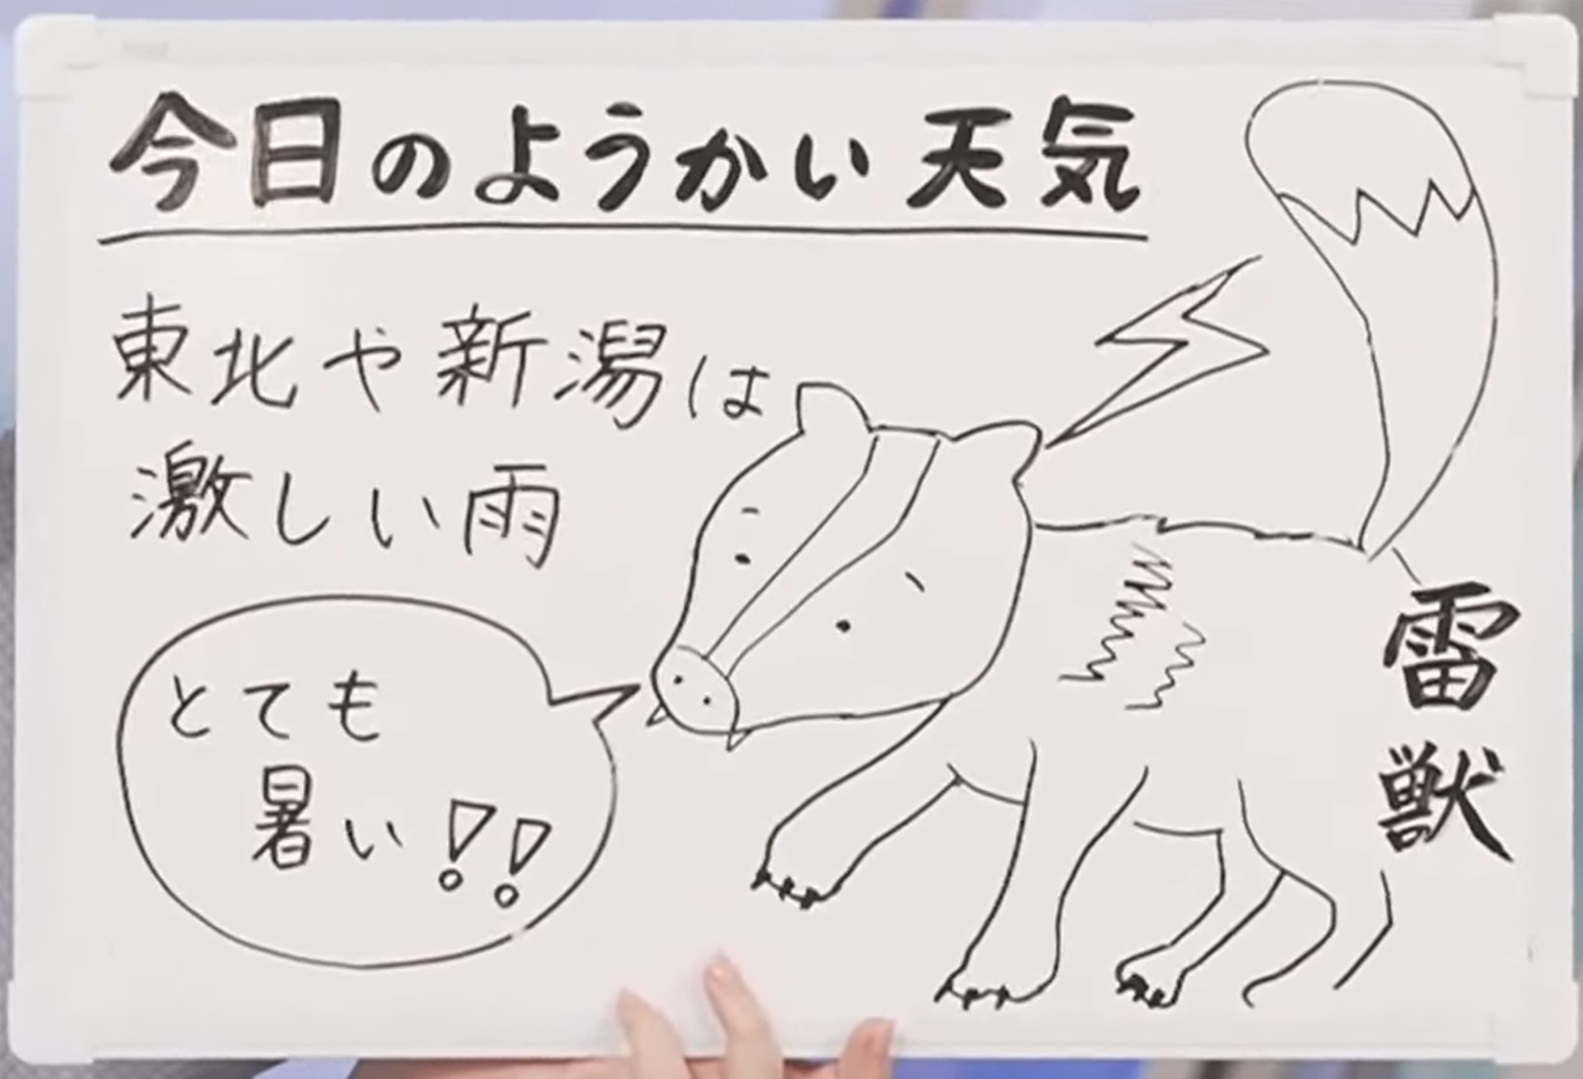 今日のようかい天気
東北や新潟は
激しい雨
とても
暑い!!
雷獣